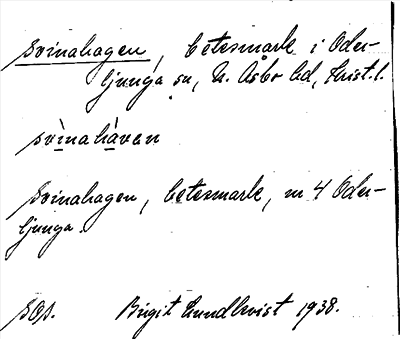 Svinahagen, betesmark i Oder-
ljunga sn, N. Åsbo hd, Krist. l.
svìnahàven
Svinahagen, betesmark, nr 4 Oder-
ljunga.
SOP. Birgit Lundkvist 1938.